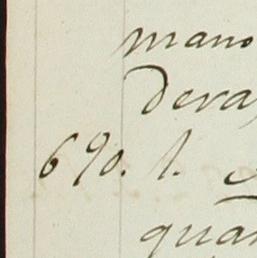 mano
dera
690. l.
quan